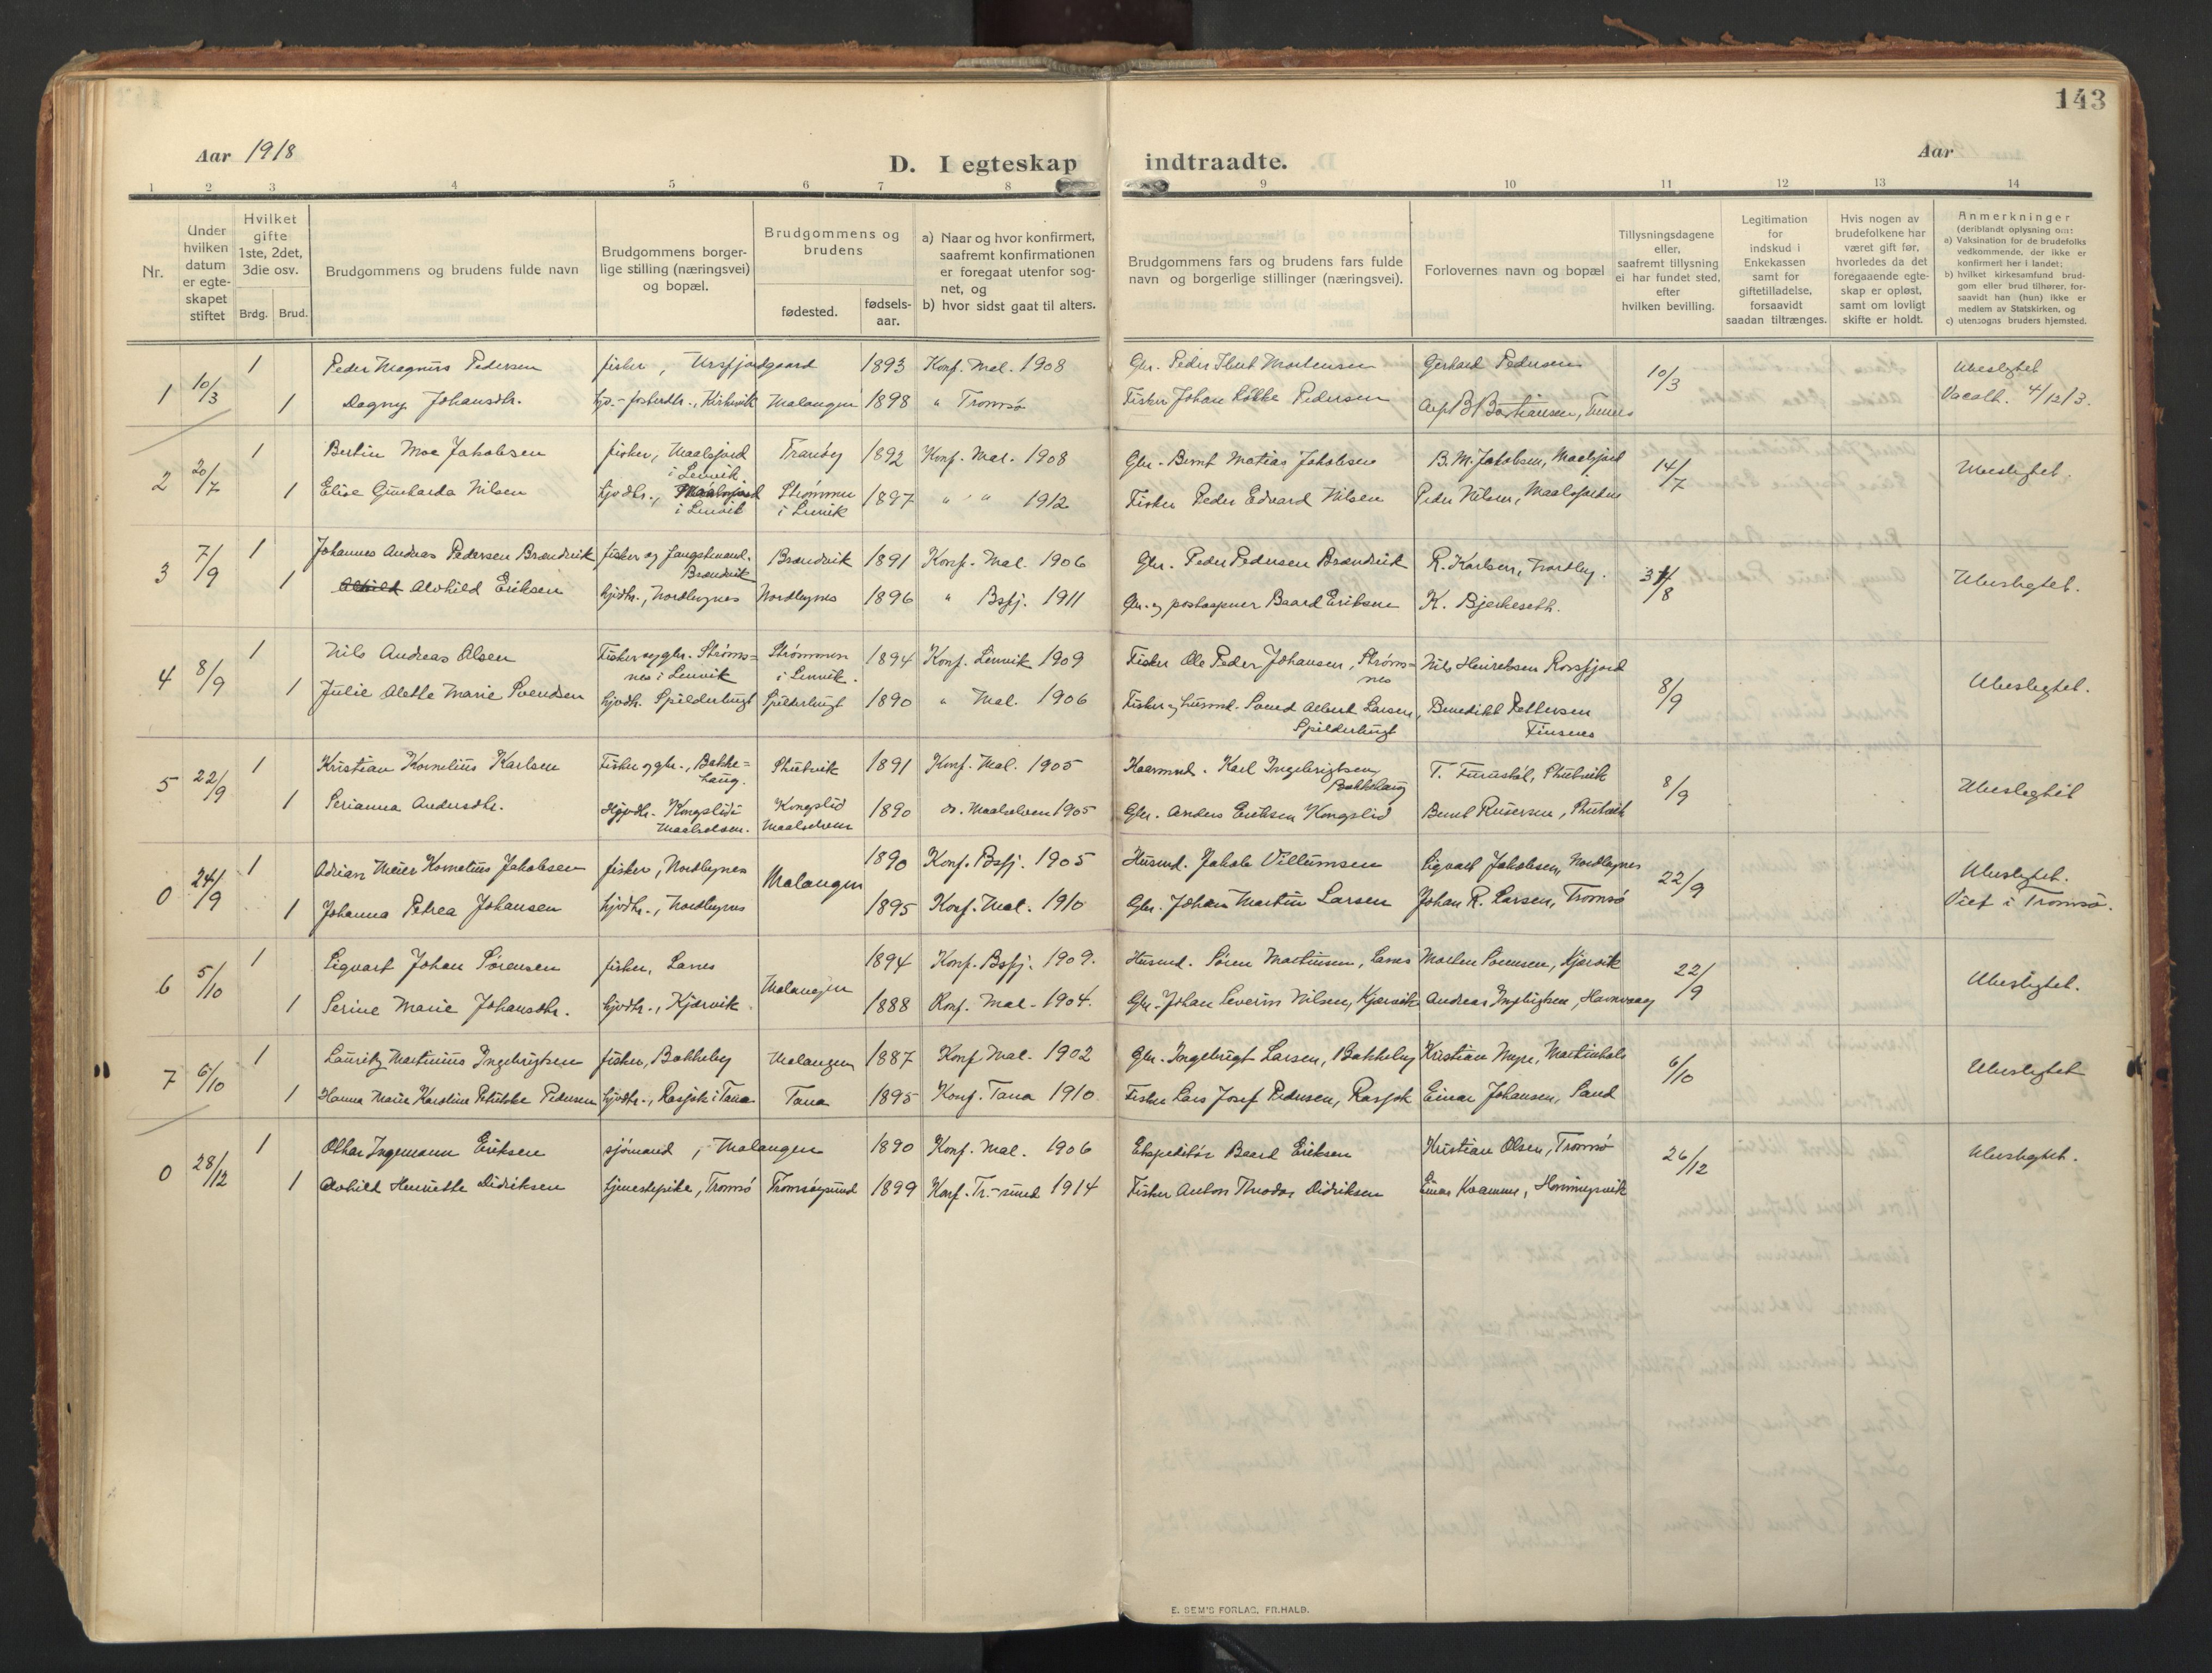 143
Aar 1918
D. I egteskap indtraadte.
Aar
1 2 3 4 5 6 7 8 9 10 11 12 13 14
Nr.
Under hvilken datum er egteskapet stiftet
Hvilket gifte 1ste, 2det, 3die osv.
Brdg. Brud.
Brudgommens og brudens fulde navn
Brudgommens borgerlige stilling (næringsvei) og bopæl.
Brudgommens og brudens
fødested.
fødsels-aar.
a) Naar og hvor konfirmert, saafremt konfirmationen er foregaat utenfor sognet, og
b) hvor sidst gaat til alters.
Brudgommens fars og brudens fars fulde navn og borgerlige stillinger (næringsvei).
Forlovernes navn og bopæl
Tillysningsdagene eller, saafremt tillysning ei har fundet sted, efter hvilken bevilling.
Legitimation for indskud i Enkekassen samt for giftetilladelse, forsaavidt saadan tiltrænges.
Hvis nogen av brudefolkene har været gift før, hvorledes da det foregaaende egteskap er opløst, samt om lovligt skifte er holdt.
Anmerkninger (deriblandt oplysning om:
a) Vaksination for de brudefolks vedkommende, der ikke er konfirmert her i landet;
b) hvilket kirkesamfund brudgom eller brud tilhører, forsaavidt han (hun) ikke er medlem av Statskirken, og
c) utensogns bruders hjemsted.
1 10/3 1 Peder Magnus Pedersen fisker, Ursfjordgaard 1893 Konf. Mal. 1908 Gbr. Peder Mortensen Gerhard Pedersen 10/3 Ubeslegtet
1 Dagny Johansdtr. hjv.-fosterdtr., Malangen 1898 " Tromsø Fisker Johan Løkke Pedersen 4/12 13.
2 20/7 1 Bertin Moe Jakobsen fisker, Maalsfjord i Lenvik Tranøy 1892 Konf. Mal. 1908 Gbr. Bernt Matias Jakobsen B. M. Jakobsen, Maalsfjord 14/7 Ubeslegtet.
1 Elise Gunharda Nilsen hjvdtr., i Lenvik Strømmen i Lenvik 1897 " " 1912 Fisker Peder Edvard Nilsen Peder Nilsen, Maalsfjorden
3 7/9 1 Johannes Andreas Pedersen Brændvik fisker og fangstmand. Brændvik Brændvik 1891 Konf. Mal. 1906 Gbr. Peder Pedersen Brændvik R. Karlsen, Nordby. /8 Ubeslegtet.
1 Alvhild Eriksen hjvdtr., Nordbynes Nordbynes 1896 " Bsfj. 1911 Gbr. og postaapner Baard Eriksen K. Bjerkeseth.
4 8/9 1 Nils Andreas Olsen Fisker og gbr. Strømsnes i Lenvik Strømmen i Lenvik. 1894 Konf. Lenvik 1909 Fisker Ole Peder Johansen, Strømsnes Nils Henriksen Rossfjord 8/9 Ubeslegtet.
1 Julie Alette Marie Svendsen hjvdtr. Spilderbugt Spilderbugt 1890 " Mal. 1906 Fisker og husmd. Svend Albert Larsen, Spilderbugt Benedikt Pettersen Finsnes
5 22/9 1 Kristian Kornelius Karlsen Fisker og gbr., Bakkehaug. Stutvik 1891 Konf. Mal. 1905 Kaarmnd. Karl Ingebrigtsen, Bakkehaug T. Furustøl, Stutvik 8/9 Ubeslegtet
1 Serianna Andersdtr. Hjvdtr. Kongslid i Maalselven. Kongslid Maalselven 1890 do. Maalselven 1905 Gbr. Anders Eriksen Kongslid Bernt Stutvik
0 24/9 1 Adrian Meier Kornelius Jakobsen fisker, Nordbynes Malangen 1890 Konf. Bsfj. 1905 Husmd. Jakob Villumsen Sigvart Jakobsen, Nordbynes 22/9 Ubeslegtet.
1 Johanna Petrea Johansen hjvdtr., Nordbynes 1895 Konf. Mal. 1910 Gbr. Johan Martin Larsen Johan R. Larsen, Tromsø Viet i Tromsø.
6 5/10 1 Sigvart Johan Sørensen fisker, Lanes Malangen 1894 Konf. Bsfj. 1909. Husmd. Søren Martinsen, Lanes Morten Sørensen, Kjærvik 22/9 Ubeslegtet.
1 Serine Marie Johansdtr. hjvdtr., Kjærvik 1888 Konf. Mal. 1904. Gbr. Johan Severin Nilsen, Kjærvik Andreas Ingebrigtsen, Havnvaag
7 6/10 1 Lauritz Martinius Ingebrigtsen fisker, Bakkeby Malangen 1887 Konf Mal. 1902 Gbr. Ingebrigt Larsen, Bakkeby Kristian Myre, 6/10 Ubeslegtet
1 Hanna Marie Karoline Pedersen hjvdtr., Rasjok i Tana Tana 1895 Konf. Tana 1910. Fisker Lars Josef Pedersen, Rasjok Einar Johansen, Sand
0 28/12 1 Othar Ingemann Eriksen sjømand, Malangen 1890 Konf. Mal. 1906 Ekspeditør Baard Eriksen Kristian Olsen, Tromsø 26/12 Ubeslegtet.
1 Alvhild Henriette Didriksen tjenestepike, Tromsø Tromsøysund 1899 Konf. Tr.-sund 1914 Fisker Anton Theodor Didriksen Einar Kvamme, Honningsvik
E. SEM'S FORLAG, FR.HALD.